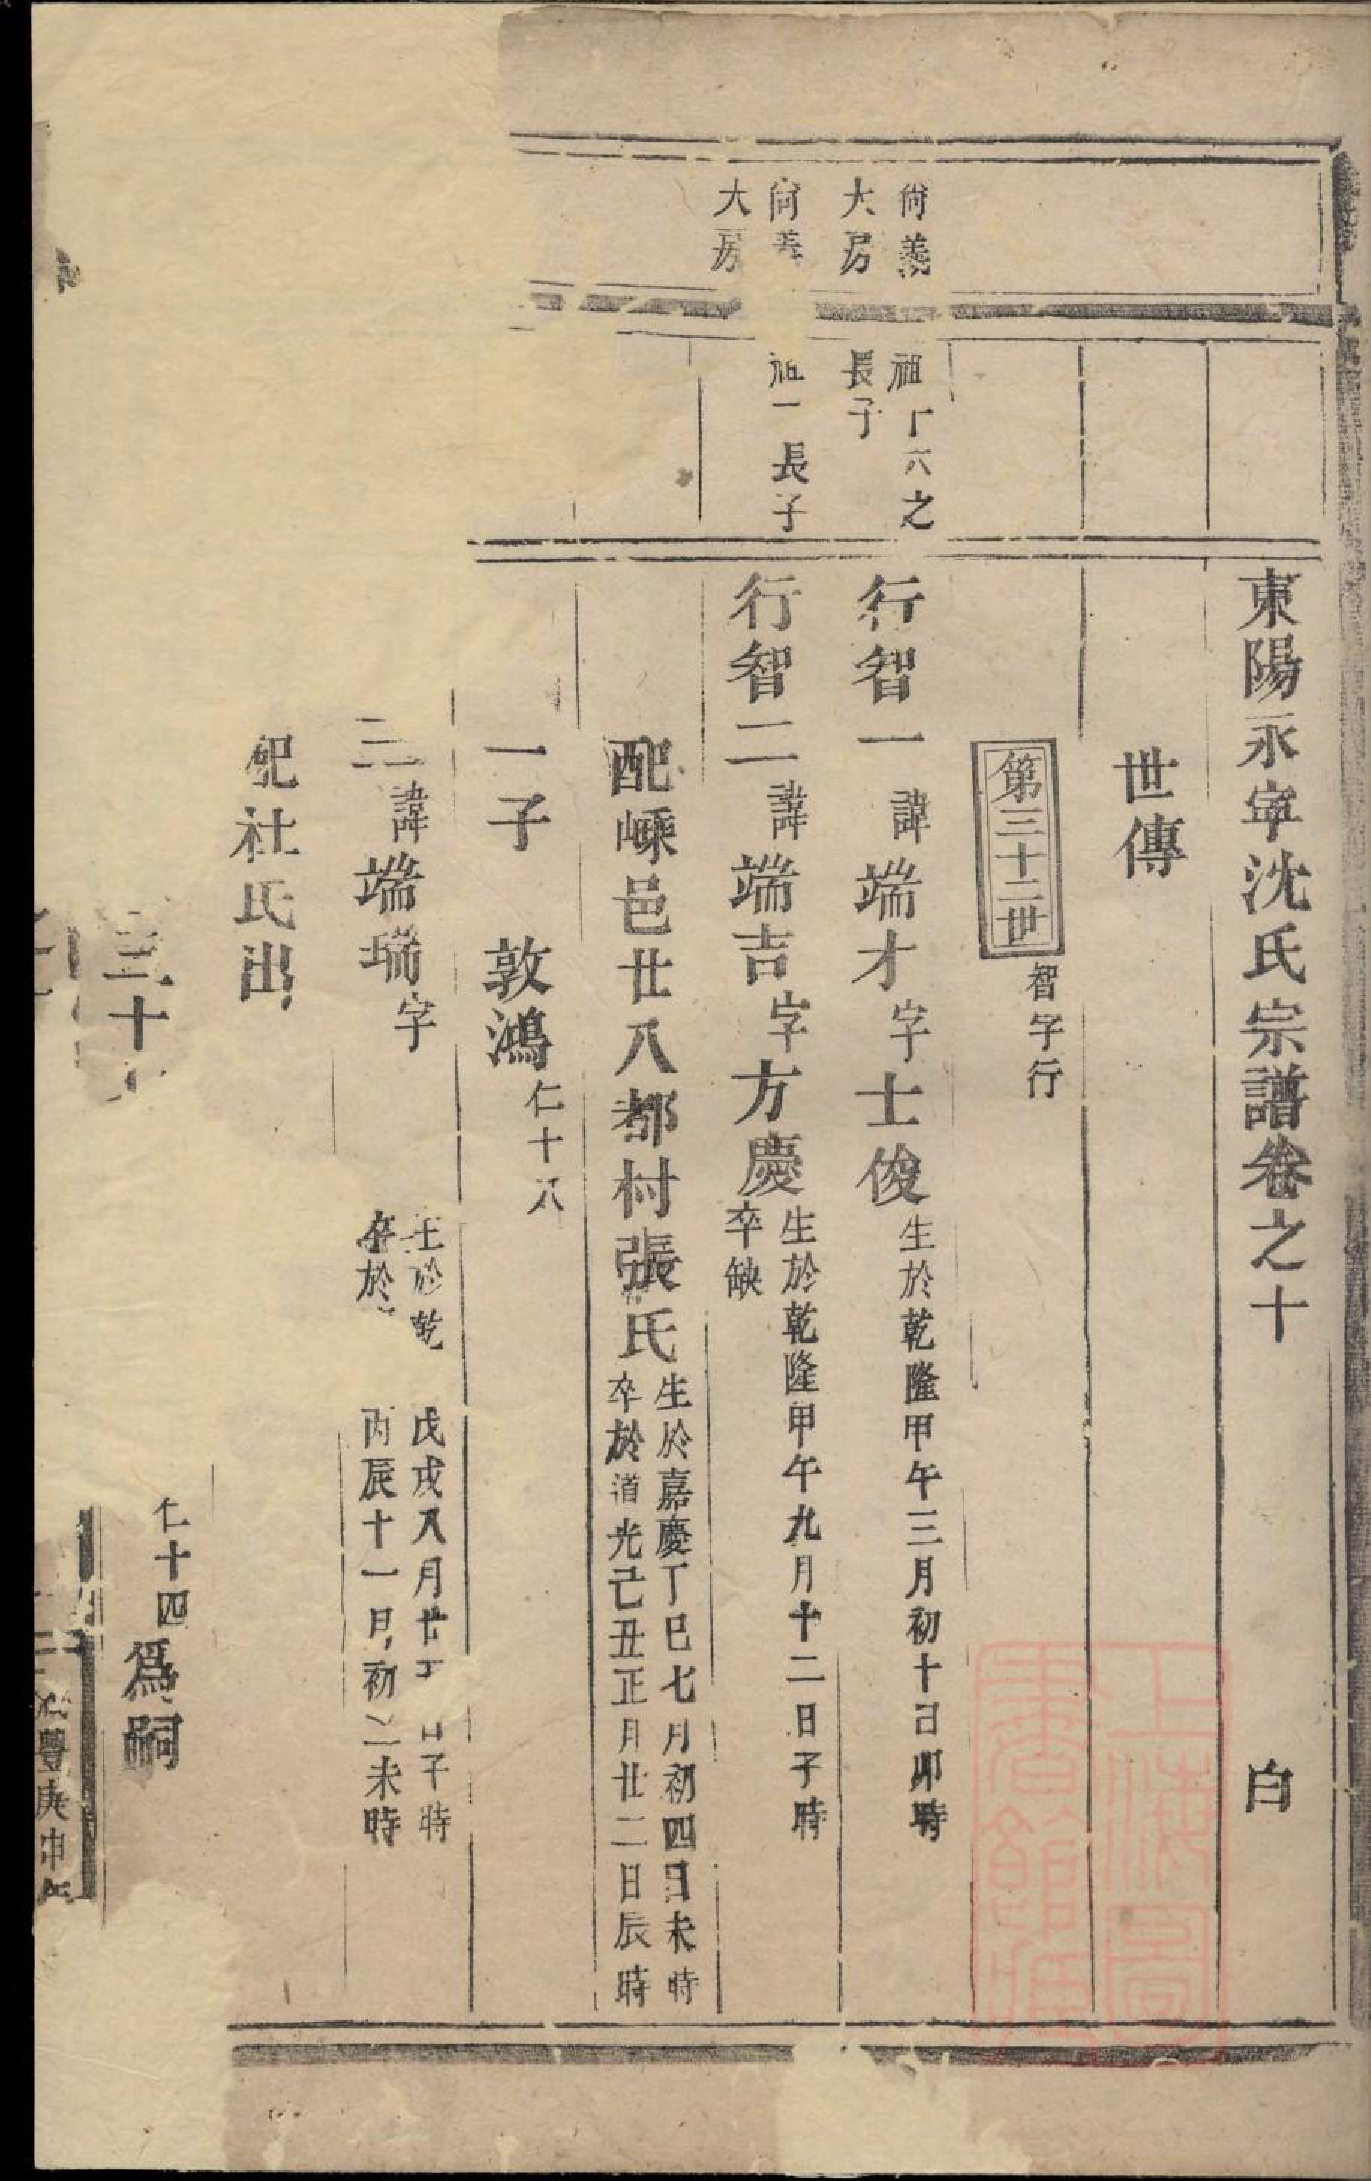 東陽永寧沈氏宗譜卷之十 白
世傳
第三十二世 智字行
尙義大房
祖十六之長子
行智一 諱端才字士俊 生於乾隆甲午三月初十日卯時
尙義大房
祖一長子
行智二 諱端吉字方慶 生於乾隆甲午九月十二日子時
卒缺
配嵊邑廿八都村張氏 生於嘉慶丁巳七月初四日未時
卒於道光己丑正月廿二日辰時
一子 敦鴻 仁十八
三 諱端瑞字 生於乾 戊戌八月廿 日子時
卒於 丙辰十一月初 未時
配杜氏出
三十
仁十四 爲嗣
豐庚申
上海圖書館藏